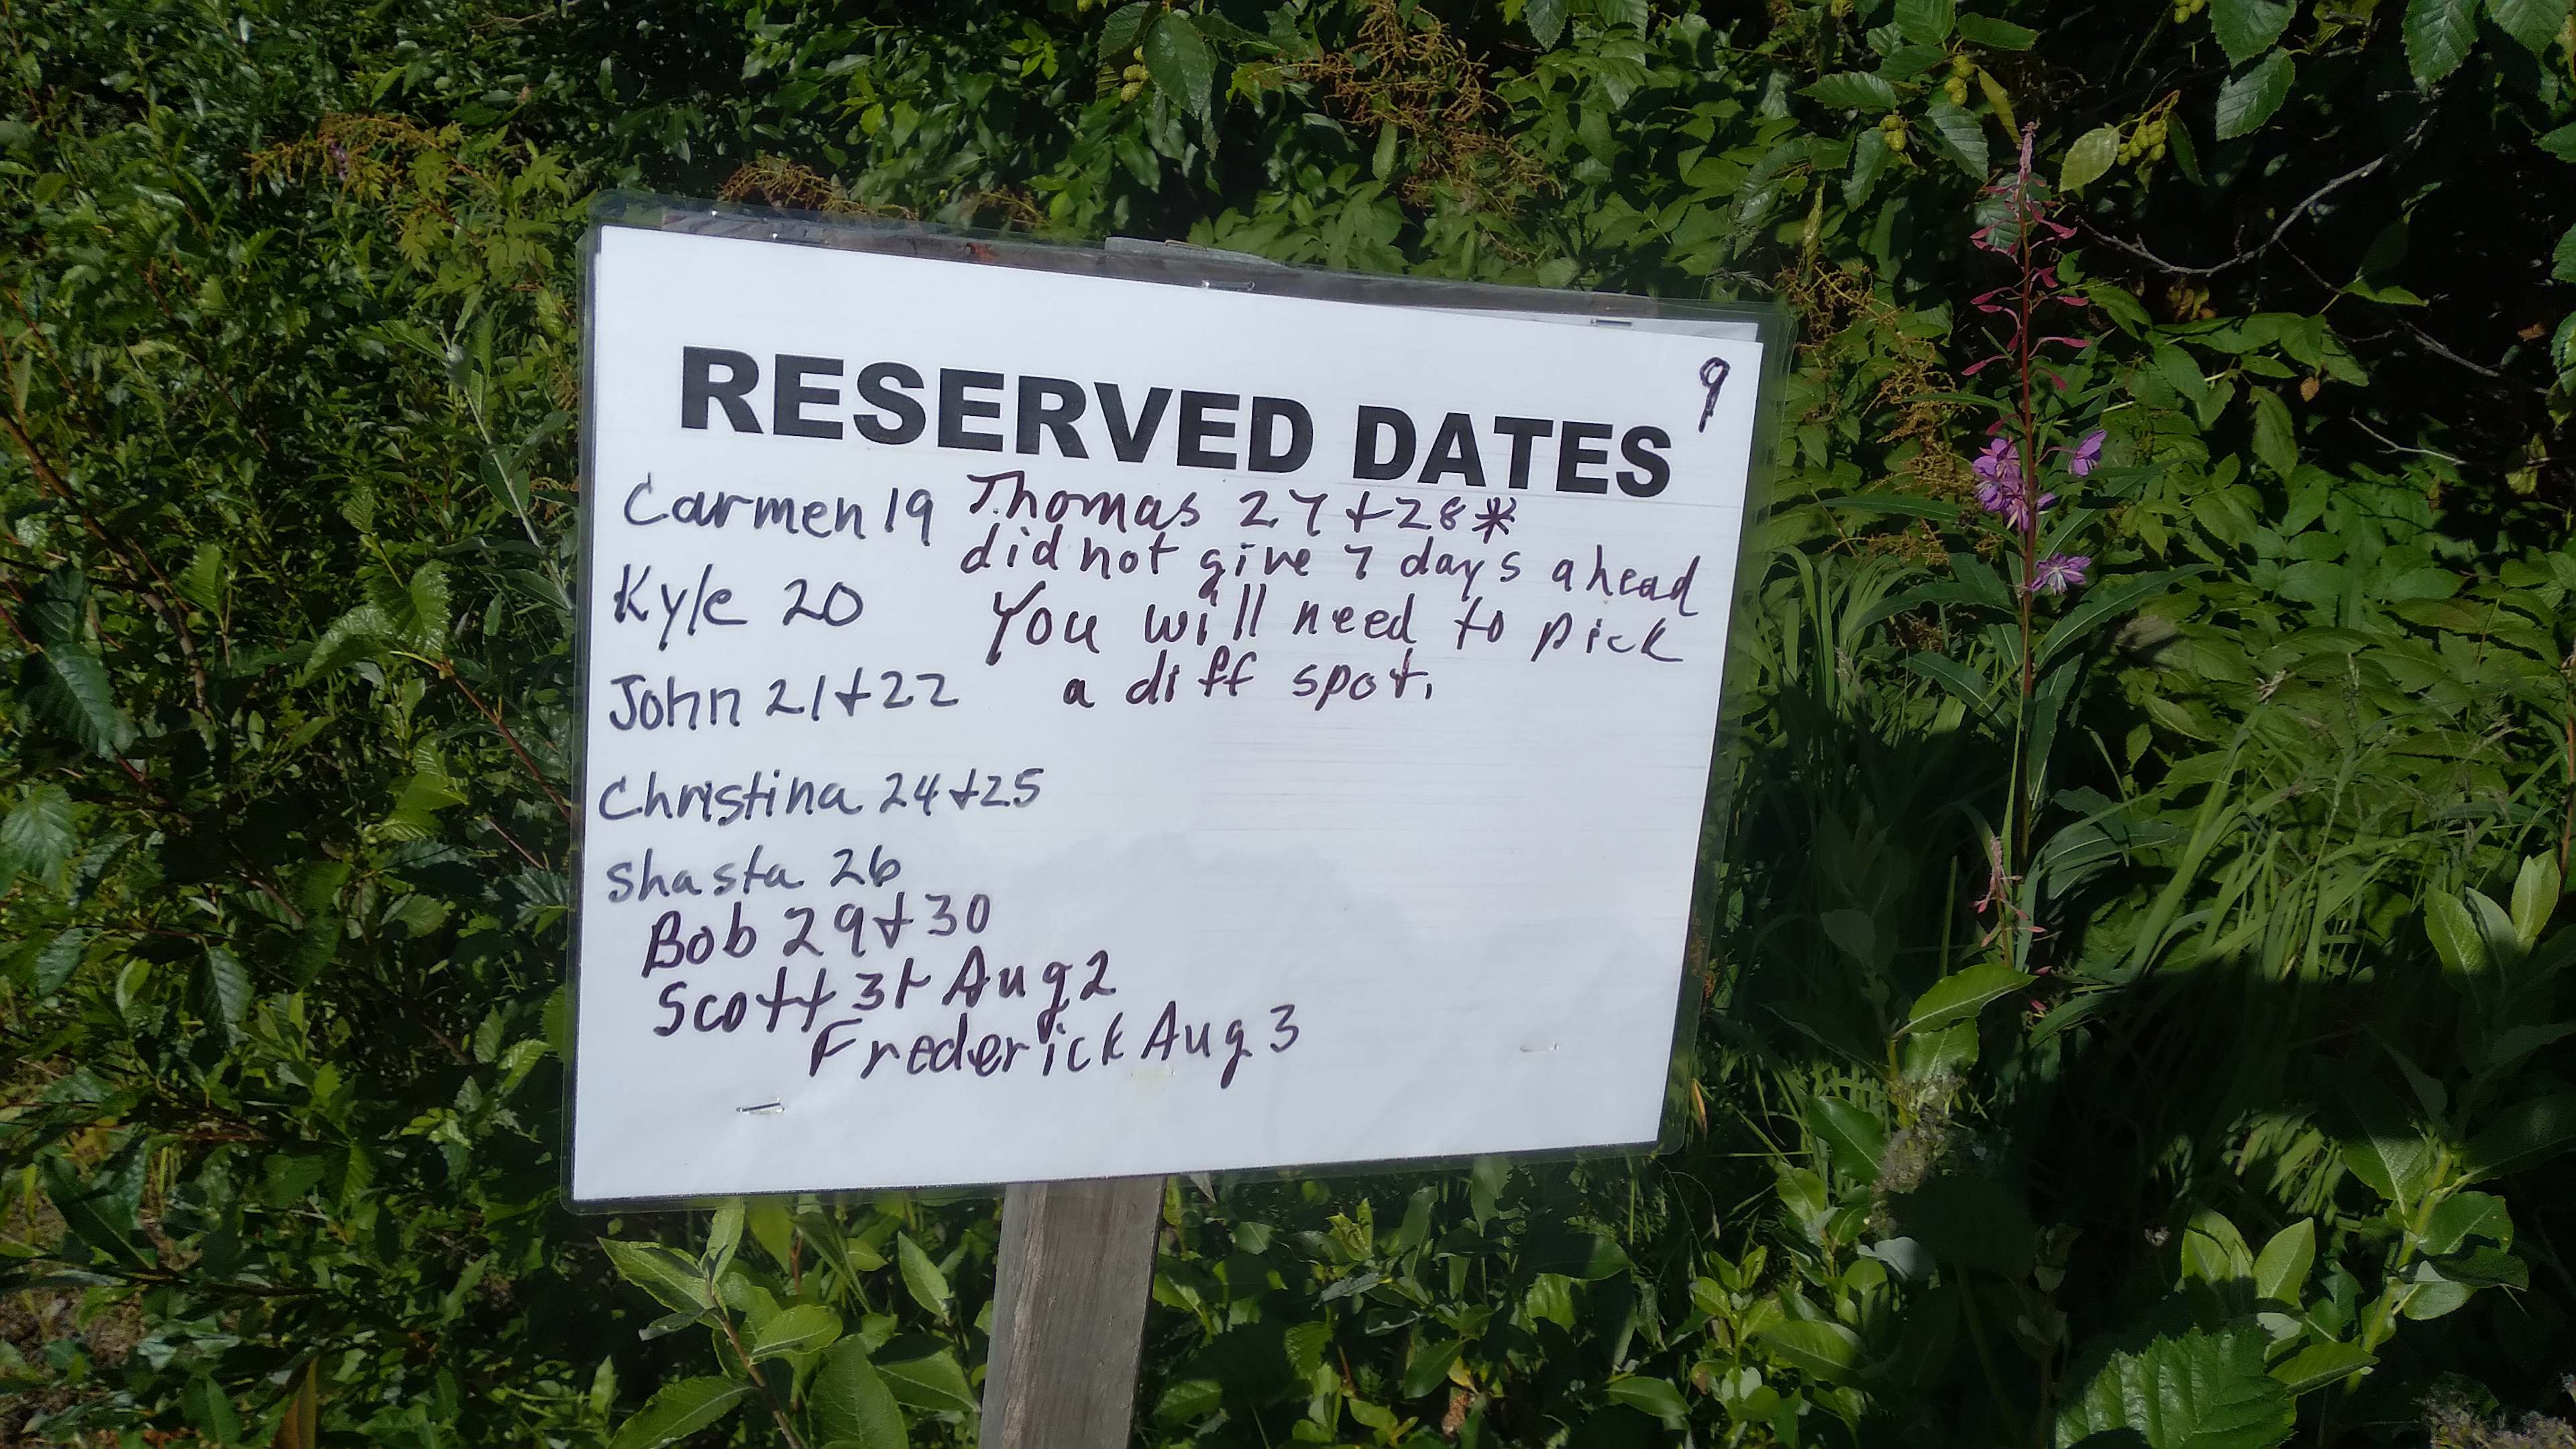 9
RESERVED DATES
Carmen 19
Kyle 20
John 21+22
Christina 24+25
Shasta 26
Bob 29+30
Scott 31- Aug 2
Frederick Aug 3
Thomas 27+28*
did not give 7 days ahead
You will need to pick
a diff spot.